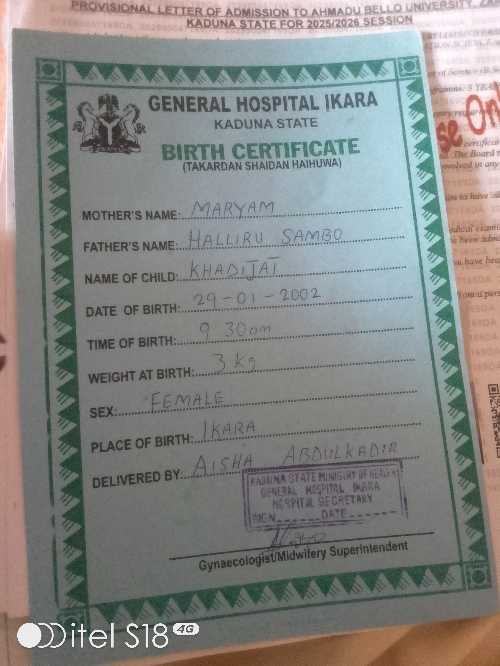 PROVISIONAL LETTER OF ADMISSION TO AHMADU BELLO UNIVERSITY, ZA
KADUNA STATE FOR 2025/2026 SESSION
GENERAL HOSPITAL IKARA
KADUNA STATE
BIRTH CERTIFICATE
(TAKARDAN SHAIDAN HAIHUWA)
MOTHER'S NAME: MARYAM
FATHER'S NAME: HALLIRU SAMBO
NAME OF CHILD: KHADIJAT
DATE OF BIRTH: 29-01-2002
TIME OF BIRTH: 9 30am
WEIGHT AT BIRTH: 3 kg
SEX: FEMALE
PLACE OF BIRTH: IKARA
DELIVERED BY AISHA ABDULKADIR
KADUNA STATE MINISTRY OF HEALTH
GENERAL HOSPITAL IKARA
HOSPITAL SECRETARY
SIGN DATE
Gynaecologist/Midwifery Superintendent
se Onl
The Board r
itel S18 4G